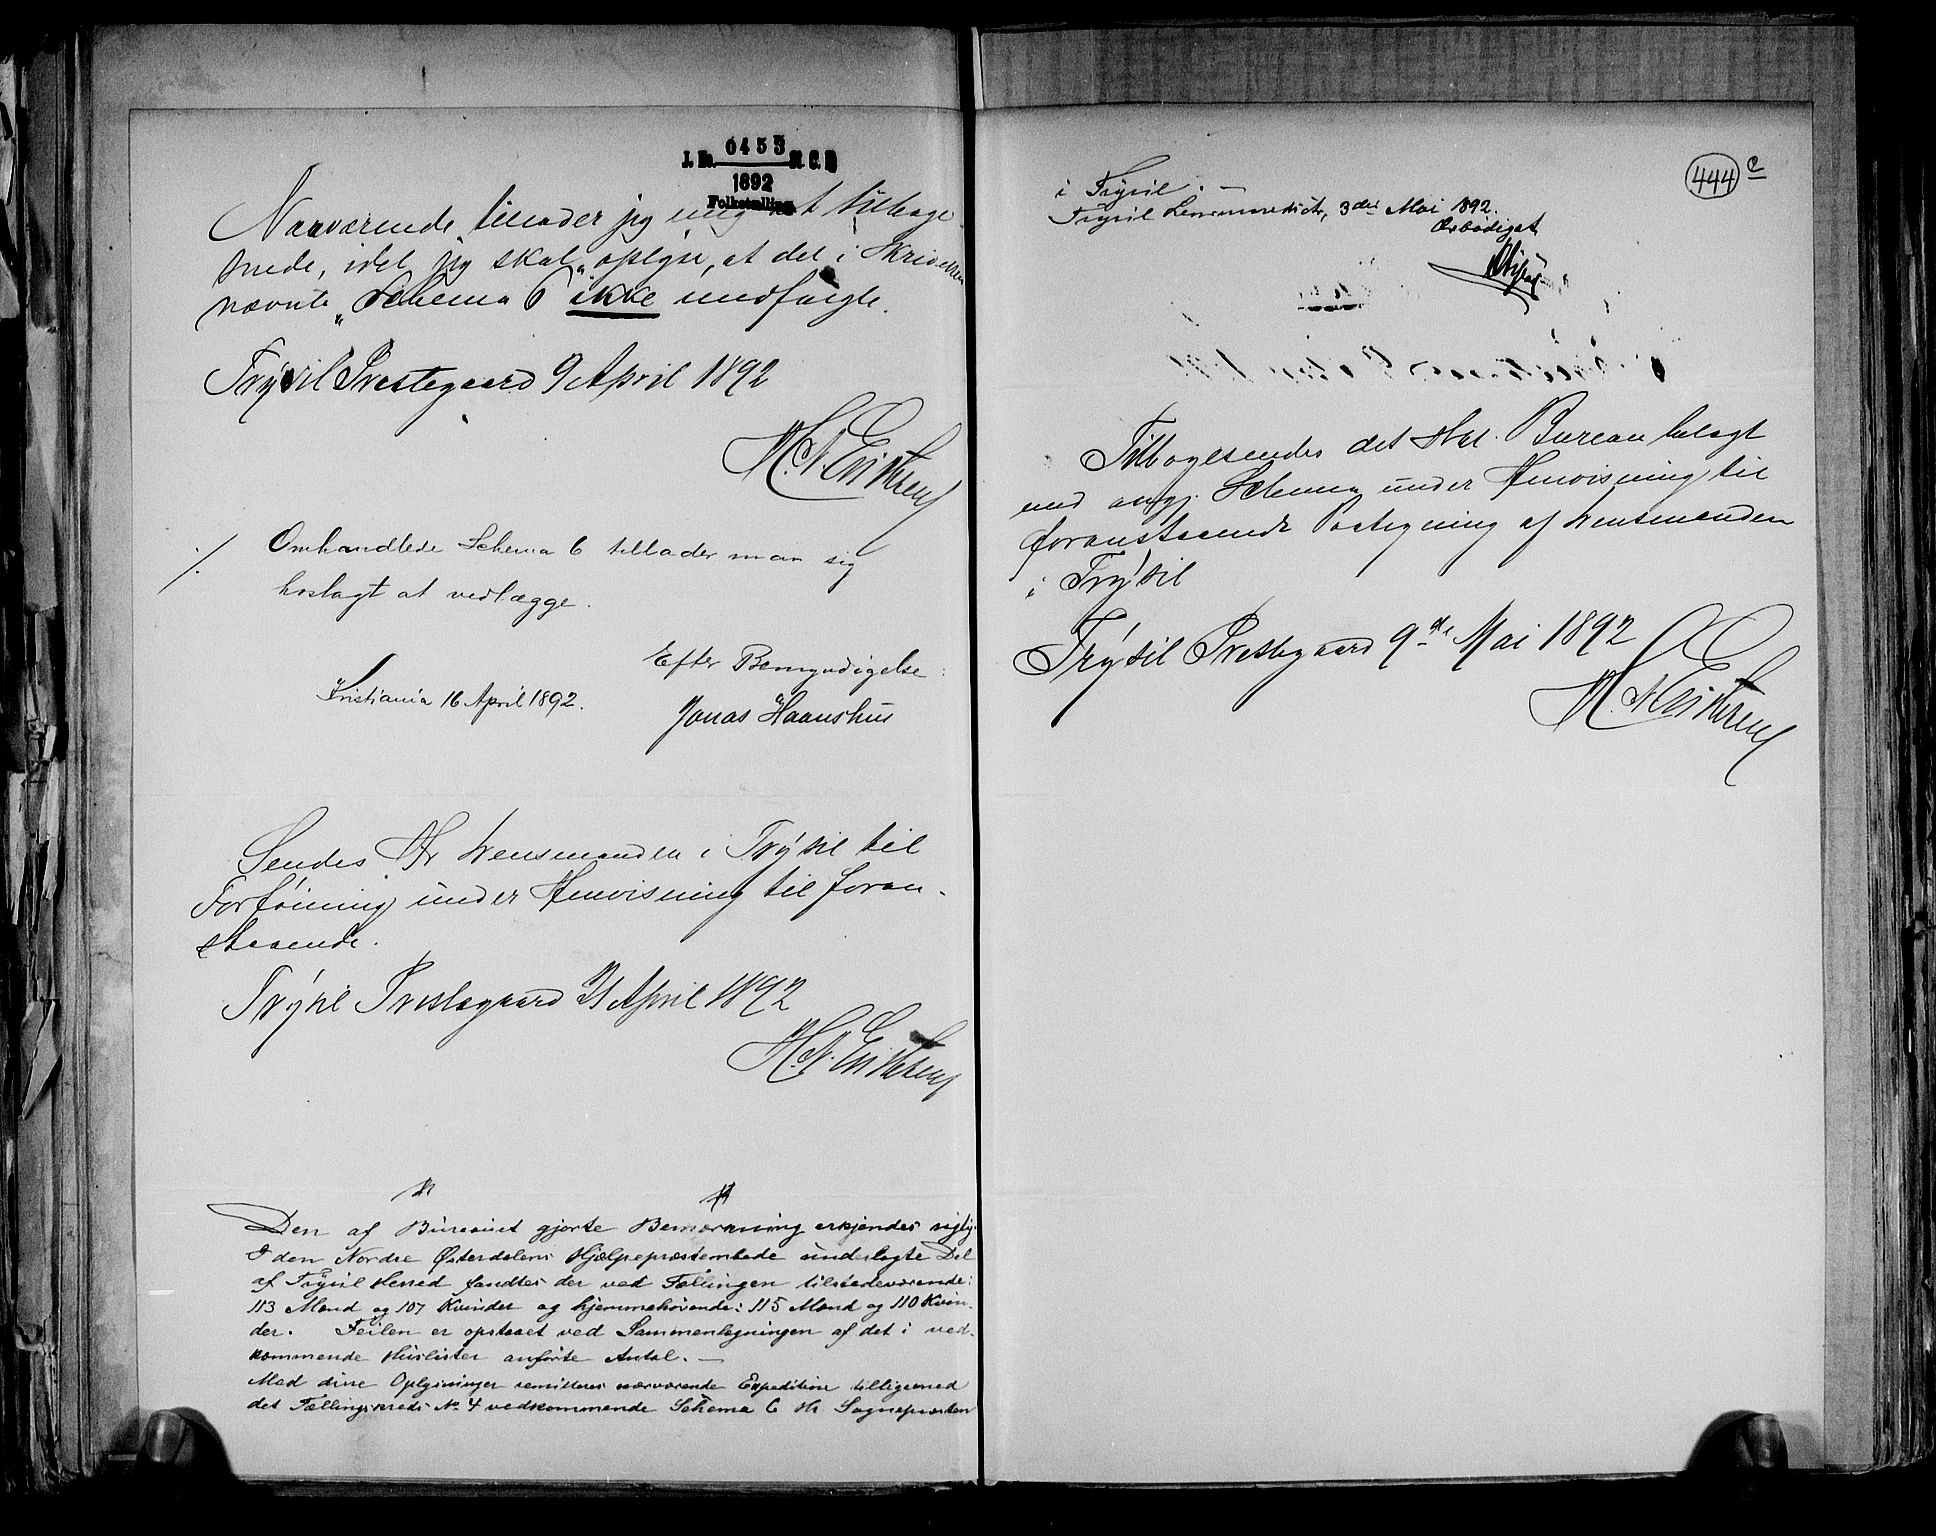 J. No. 0453 St. C. B.
1892
Folketælling
Nærværende tillader jeg mig at tilbage
sende, idet jeg skal oplyse, at det i Skrivelsen
nævnte „Schema 6 ikke medfulgte.
Trysil Præstegaard 9 April 1892
H. N.
./. Omhandlede Schema 6 tillader man sig
hoslagt at vedlægge.
Efter Bemyndigelse:
Kristiania 16 April 1892.
Jonas Haanshus
Sendes Hr Lensmanden i Trysil til
Forføining under Henvisning til foran-
staaende.
Trysil Præstegaard 21 April 1892
H. N.
Den af Bureauet gjorte Bemærkning erkjendes rigtig.
I den Nordre Østerdalens Hjælpepræstembede underlagte Del
af Trysil Herred fandtes der ved Tællingen tilstedeværende:
113 Mænd og 107 Kvinder og hjemmehørende: 115 Mænd og 110 Kvin-
der. Feilen er opstaaet ved Sammenlægningen af det i ved-
kommende Huslister anførte Antal. —
Med disse Oplysninger remitteres nærværende Expedition tilligemed
det Tællingskreds No 4 vedkommende Schema 6 Hr. Sognepræsten
444 c
i Trysil. —
Trysil Lensmandsktr, 3die Mai 1892.
Ærbødigst
Tilbagesendes det Stat. Bureau bilagt
med angj. Schema under Henvisning til
foranstaaende Paategning af Lensmanden
i Trysil
Trysil Præstegaard 9de Mai 1892
H. N.